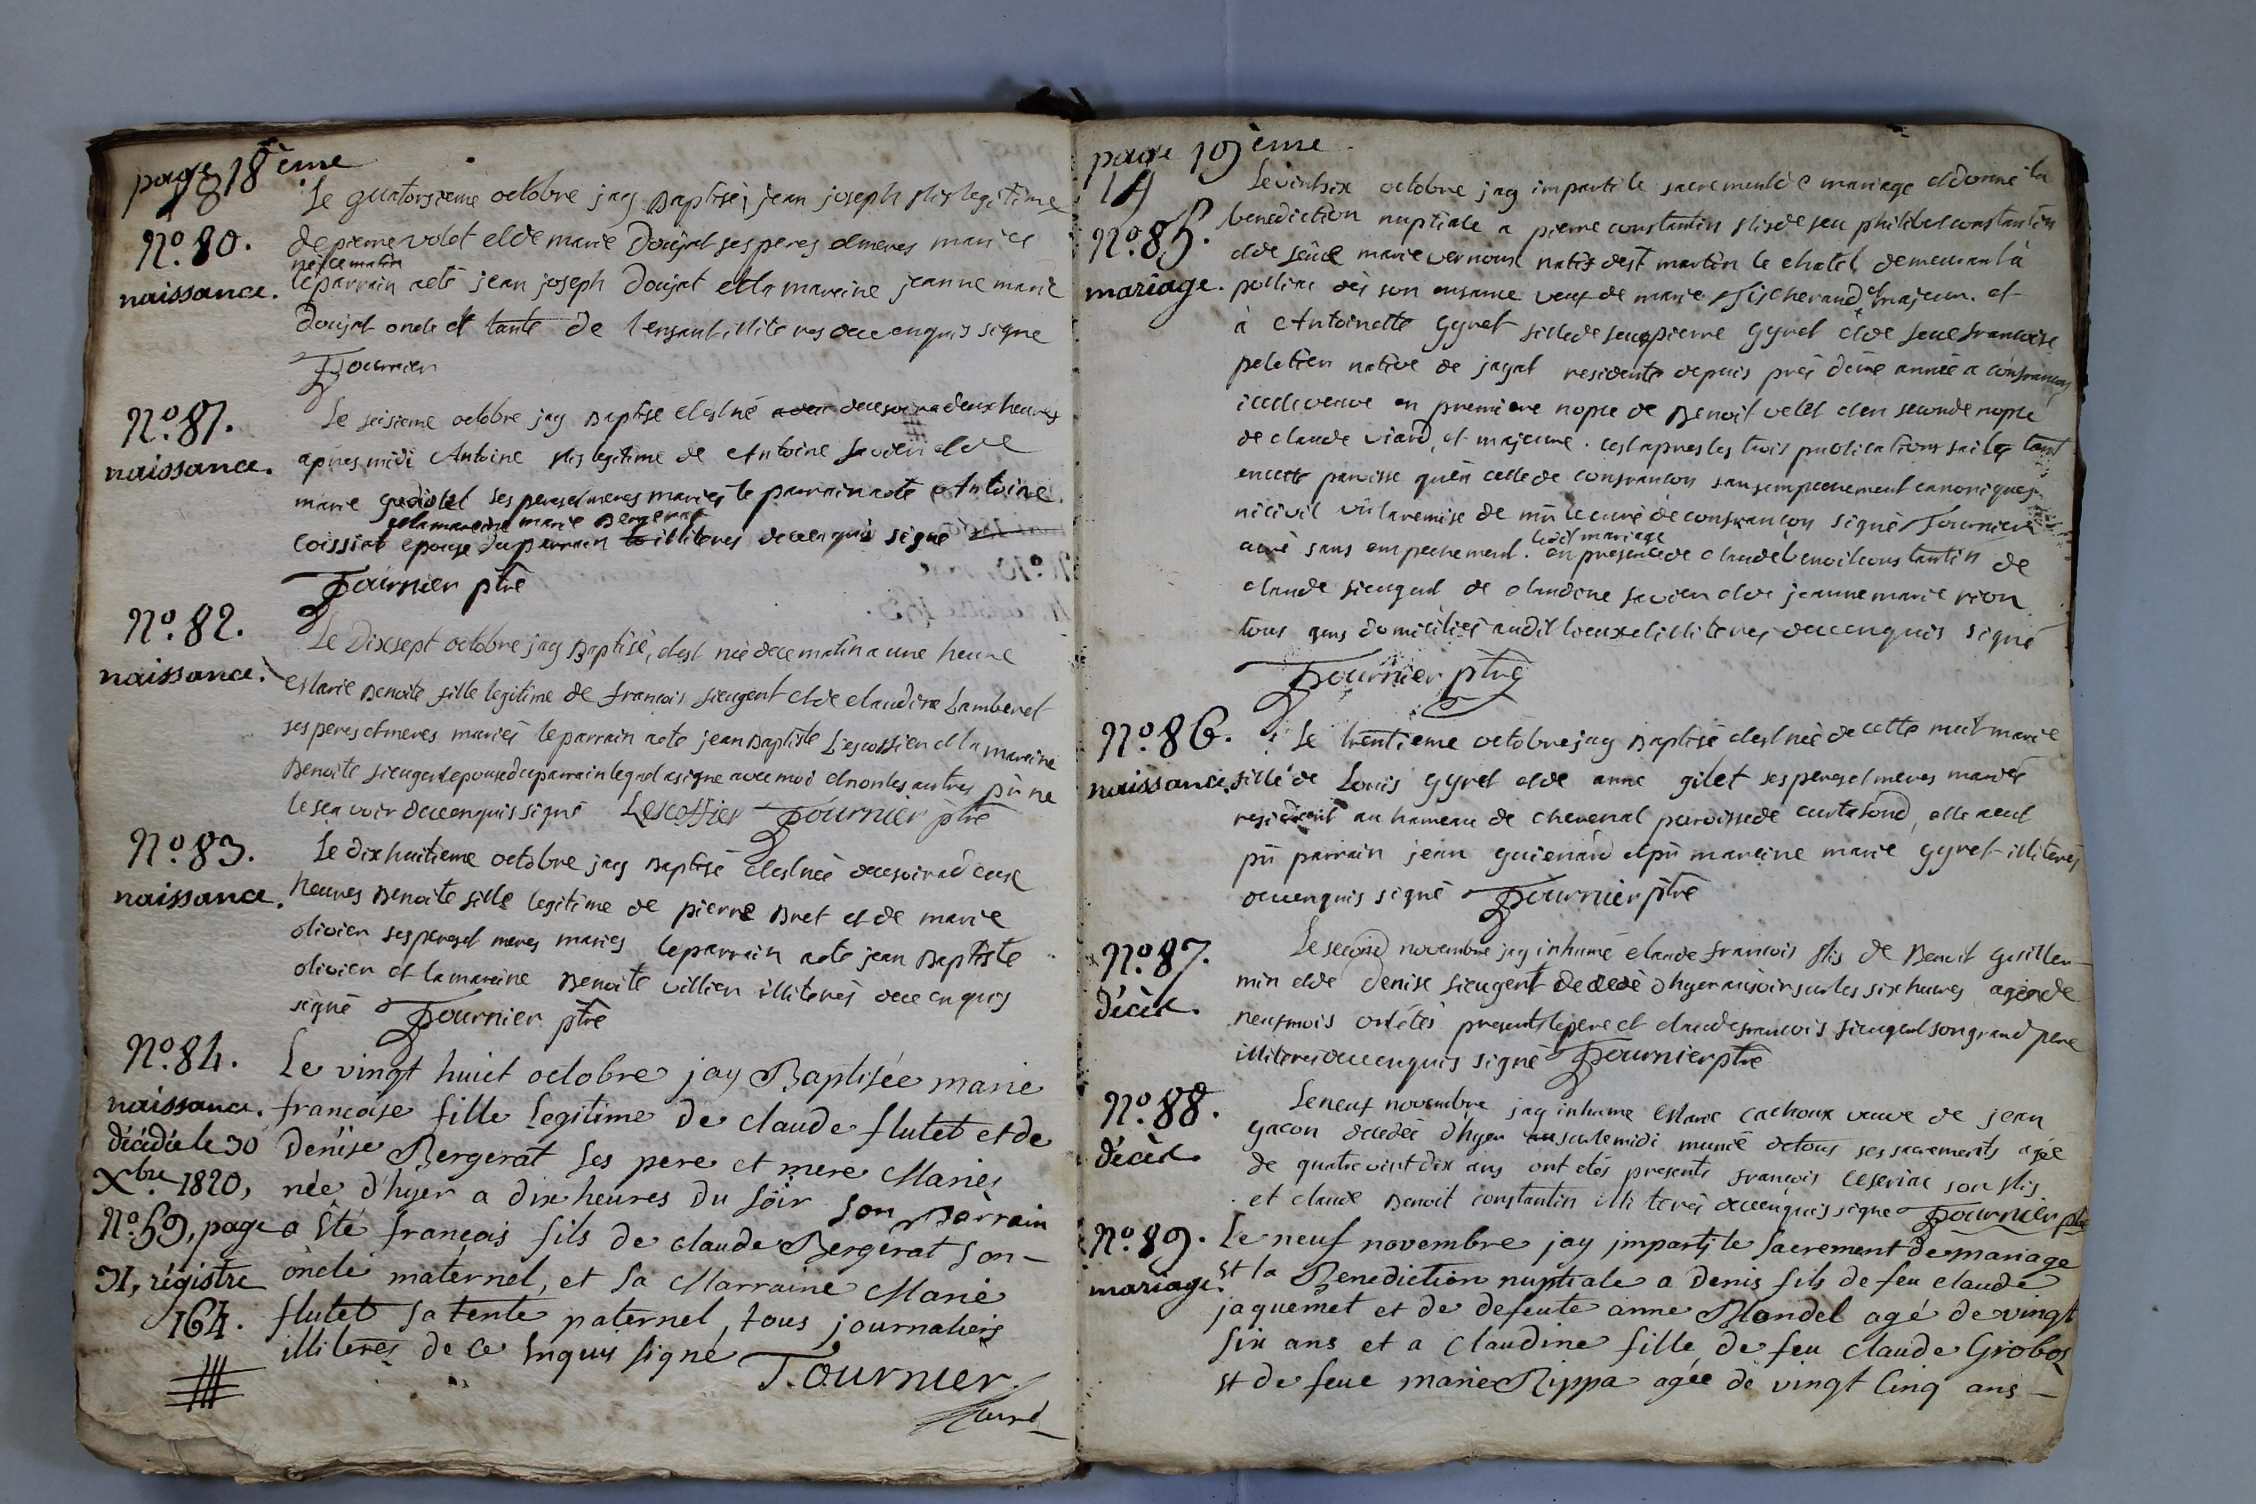 page 18ème
18
Nº. 80.
naissance.
Le quatorsieme octobre jay Baptisé jean joseph fils legitime
de pierre volet et de marie Doujat ses peres et meres mariés
né ce matin
le parrain a eté jean joseph Doujat et la maraine jeanne marie
Doujat oncle et tante de l'enfant illiteres de ce enquis signe
Fournier
Nº. 81.
naissance.
Le seisieme octobre jay Baptisé et est né de ce soir a deux heures
apres midi Antoine fils legitime de Antoine savien et de
marie ses peres et meres mariés le parrain a eté Antoine
et la maraine marie Bergerat
Coissiat epouse du parrain illiteres de ce enquis signé
Fournier ptre
Nº. 82.
naissance.
Le Dixsept octobre jay Baptisé, et est née de ce matin a une heure
Marie Benoite fille legitime de francois sieugent et de claudine Lamberet
ses peres et meres mariés le parrain a eté jean Baptiste Lescossier et la maraine
Benoite sieugent epouse du parrain lequel a signe avec moi et non les autres pr ne
le sça voir de ce enquis signé Lescoffier Fournier ptre
Nº. 83.
naissance.
Le dixhuitieme octobre jay Baptisé et est née de ce soir a deux
heures Benoite fille legitime de pierre Bret et de marie
olivier ses peres et meres mariés le parrain a eté jean Baptiste
olivier et la maraine Benoite villier illiterés de ce enquis
signé Fournier ptre
Nº. 84.
naissance.
décédée le 30
Xbre 1820,
Nº. 59, page
31, régistre
164.
Le vingt huict octobre jay Baptisée marie
francoise fille legitime de claude flutet et de
Denise Bergerat ses pere et mere Mariés
née d'hyer a dix heures du soir son Parrain
a été françois fils de claude Bergerat son-
oncle maternel, et sa Marraine Marie
flutet sa tente paternel, tous journaliers
illiteres de ce enquy signé Fournier
curé
page 19ème
19
Nº. 85.
mariage.
Le vintsix octobre jay imparti le sacrement de mariage et donné la
benediction nuptiale a pierre constantin fils de feu philibert constantin
et de feüe marie vernoux natif de st martin le chatel demeurant à
polliac dès son enfance veuf de marie et majeur. et
à Antoinette Gyret fille de feu pierre Gyret et de feue francoise
peletier native de jayat residente depuis près d'une année a confrancon
icelle veuve en premiere nopce de Benoit velet et en seconde nopce
de claude viard, et majeure. cest apres les trois publications faites tant
en cette paroisse qu'en celle de confrancon sans empechement canonique
ni civil vû la remise de mr le curé de confrancon signé Fournier
curé sans empechement. ledit mariage en presence de claude benoit constantin de
claude sieugent de claudine savien et de jeanne marie rion
tous gens domiciliés audit lieux et illiterés de ce enquis signé
Fournier ptre
Nº. 86.
naissance.
Le trentieme octobre jay Baptisé et est née de cette nuit marie
fille de Louis Gyret et de anne gilet ses peres et meres mariés
residant au hameau de chevenat paroisse de curtafond, elle a eut
pr parrain jean guienard et pr maraine marie gyret illiterés
de ce enquis signé Fournier ptre
Nº. 87.
décèd.
Le second novembre jay inhumé claude francois fils de Benoit guiller-
min et de Denise sieugent decedé d'hyer au soir sur les six heures agé de
neuf mois ont étés presents le pere et claude francois sieugent son grand pere
illiterés de ce enquis signé Fournier ptre
Nº. 88.
décèd.
Le neuf novembre jay inhumé Marie cachoux veuve de jean
gacon decedée d'hyer sur le midi munie de tous ses sacrements agée
de quatre vint dix ans ont étés presents françois son fils
et claude Benoit constantin illiterés de ce enquis signe Fournier ptre
Nº. 89.
mariage.
Le neuf novembre jay imparti le sacrement de mariage
et la Benediction nuptiale a Denis fils de feu claude
jaquemet et de defeute anne Mandel agé de vingt
six ans et a claudine fille de feu claude Grobos
et de feue marie Rippa agée de vingt cinq ans-